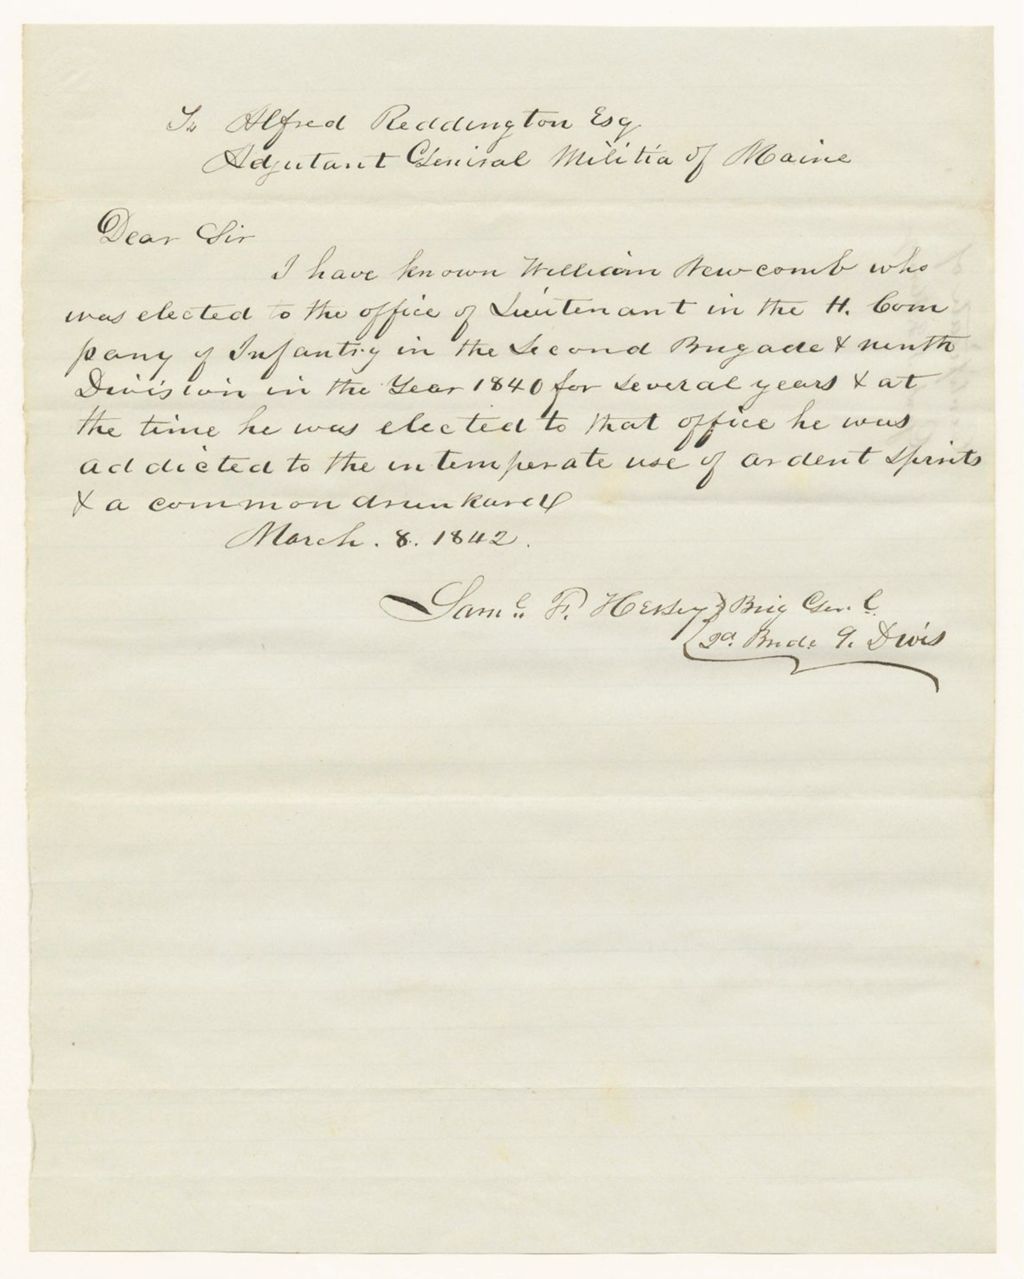 To Alfred Reddington Esq
Adjutant General Militia of Maine
Dear Sir
I have known William Newcomb who
was elected to the office of Lieutenant in the H. Com
pany of Infantry in the Second Brigade & ninth
Division in the Year 1840 for several years & at
the time he was elected to that office he was
addicted to the intemperate use of ardent spirits
& a common drunkard
March. 8. 1842.
Saml. F. Hersey } Brig Gen.
{ 2d. Brde 9. Divis